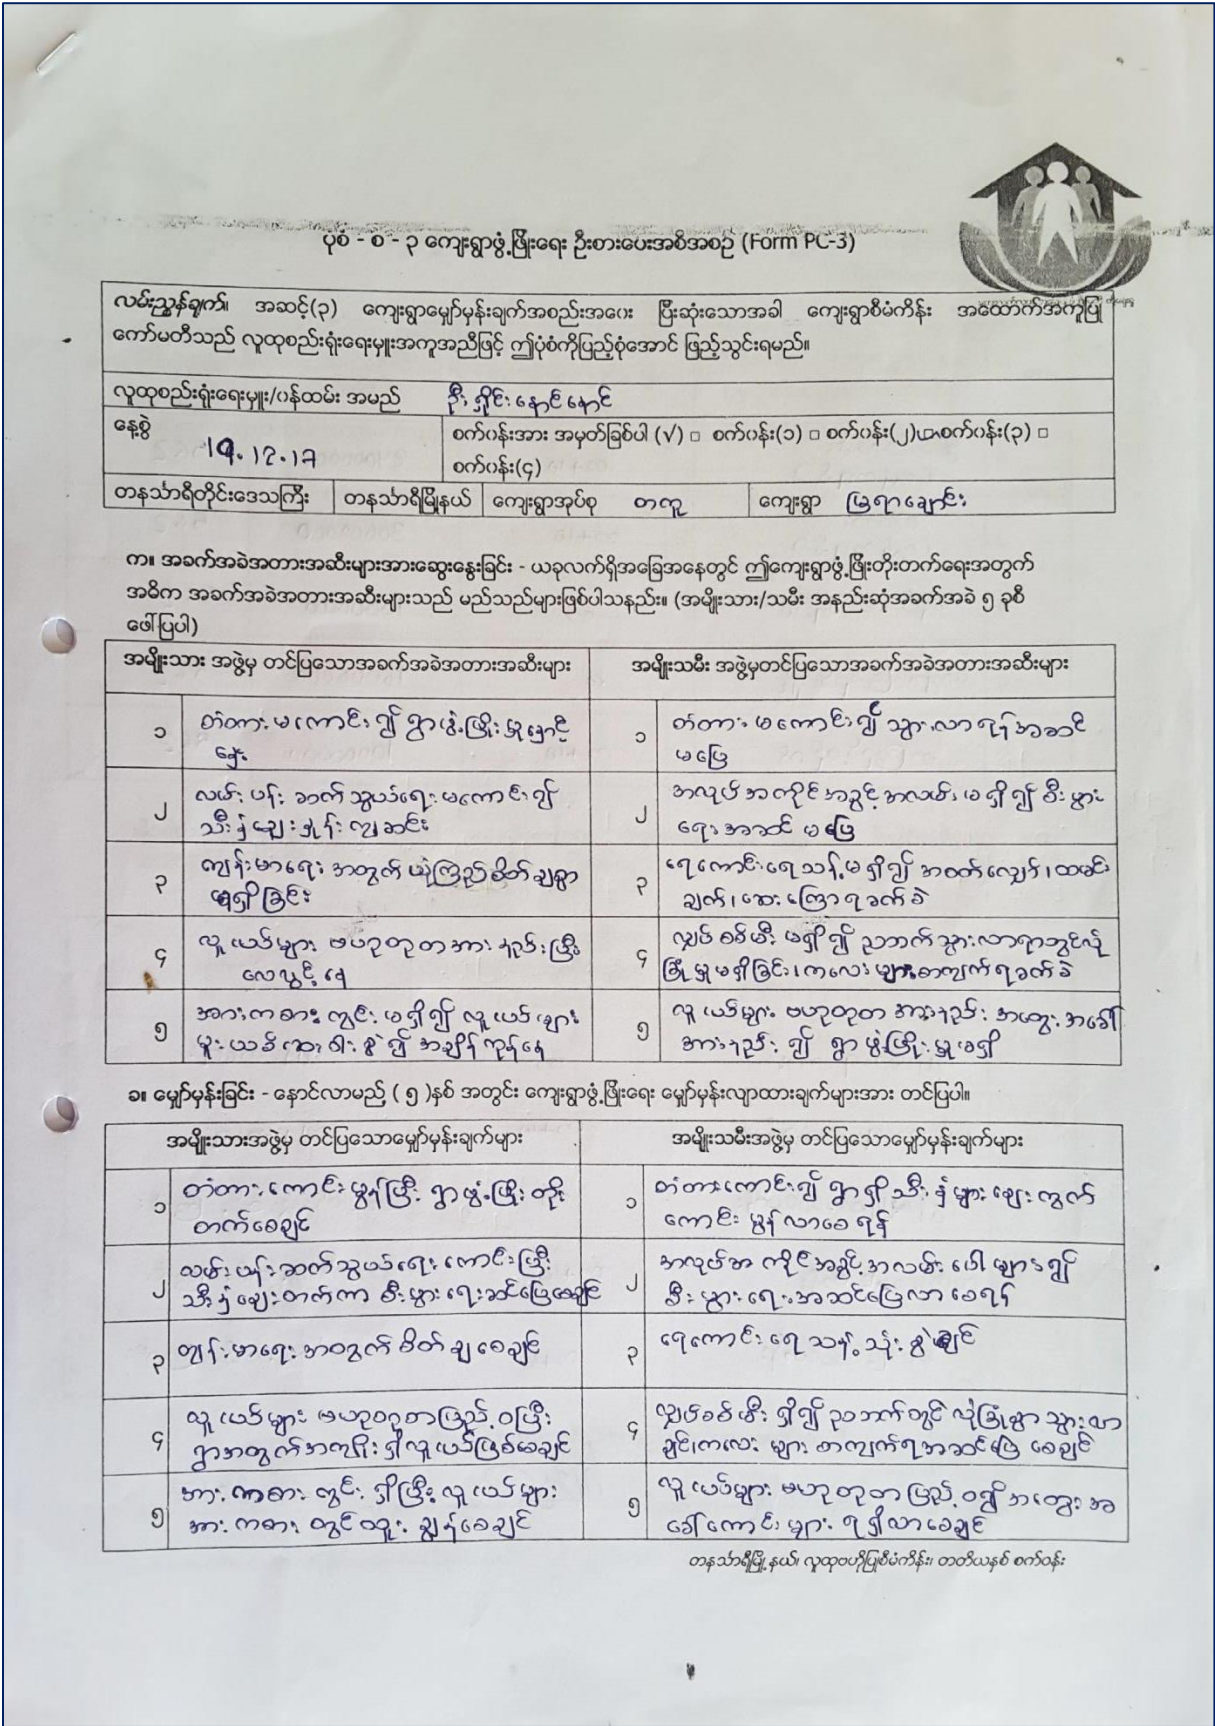 ပုံစံ - စ - ၃ ကျေးရွာဖွံ့ဖြိုးရေး ဦးစားပေးအစီအစဉ် (Form PC-3)
လမ်းညွှန်ချက်၊ အဆင့်(၃) ကျေးရွာမျှော်မှန်းချက်အစည်းအဝေး ပြီးဆုံးသောအခါ ကျေးရွာစီမံကိန်း အထောက်အကူပြု
ကော်မတီသည် လူထုစည်းရုံးရေးမှူးအကူအညီဖြင့် ဤပုံစံကိုပြည့်စုံအောင် ဖြည့်သွင်းရမည်။
လူထုစည်းရုံးရေးမှူး/ဝန်ထမ်း အမည် ဦးရှိုင်းနောင်နောင်
နေ့စွဲ ၁၅.၁၂.၁၇ စက်ဝန်းအား အမှတ်ခြစ်ပါ (√) □ စက်ဝန်း(၁) □ စက်ဝန်း(၂) စက်ဝန်း(၃) □
စက်ဝန်း(၄)
တနင်္သာရီတိုင်းဒေသကြီး တနင်္သာရီမြို့နယ် ကျေးရွာအုပ်စု တကူ ကျေးရွာ
က။ အခက်အခဲအတားအဆီးများအားဆွေးနွေးခြင်း - ယခုလက်ရှိအခြေအနေတွင် ဤကျေးရွာဖွံ့ဖြိုးတိုးတက်ရေးအတွက်
အဓိက အခက်အခဲအတားအဆီးများသည် မည်သည်များဖြစ်ပါသနည်း။ (အမျိုးသား/သမီး အနည်းဆုံအခက်အခဲ ၅ ခုစီ
ဖေါ်ပြပါ)
အမျိုးသား အဖွဲ့မှ တင်ပြသောအခက်အခဲအတားအဆီးများ အမျိုးသမီး အဖွဲ့မှတင်ပြသောအခက်အခဲအတားအဆီးများ
၁ တံတားမကောင်း၍ ရွာဖွံ့ဖြိုးမှုနှောင့်
နှေး
၁ တံတားမကောင်း၍ သွားလာရန်အဆင်
မပြေ
၂ လမ်းပန်းဆက်သွယ်ရေးမကောင်း၍
သီးနှံဈေးနှုန်းကျဆင်း
၂ အလုပ်အကိုင်အခွင့်အလမ်းမရှိ၍ စီးပွား
ရေးအဆင်မပြေ
၃ ကျန်းမာရေးအတွက် ယုံကြည်စိတ်ချစွာ
မရှိခြင်း
၃ ရေကောင်းရေသန့်မရှိ၍ အဝတ်လျှော်၊ ထမင်း
ချက်၊ ဆေးကြောရခက်ခဲ
၄ လူငယ်များ ဗဟုသုတအားနည်းပြီး
လေလွင့်နေ
၄ လျှပ်စစ်မီးမရှိ၍ ညဘက်သွားလာရာတွင်လုံ
ခြုံမှုမရှိခြင်း၊ ကလေးများစာကျက်ရခက်ခဲ
၅ အားကစားကွင်းမရှိ၍ လူငယ်များ
မူးယစ်ဆေးဝါးစွဲ၍ အချိန်ကုန်နေ
၅ လူငယ်များ ဗဟုသုတအားနည်း အတွေးအခေါ်
အားနည်း၍ ရွာဖွံ့ဖြိုးမှုမရှိ
ခ။ မျှော်မှန်းခြင်း - နောင်လာမည့် ( ၅ )နှစ် အတွင်း ကျေးရွာဖွံ့ဖြိုးရေး မျှော်မှန်းလျာထားချက်များအား တင်ပြပါ။
အမျိုးသားအဖွဲ့မှ တင်ပြသောမျှော်မှန်းချက်များ အမျိုးသမီးအဖွဲ့မှ တင်ပြသောမျှော်မှန်းချက်များ
၁ တံတားကောင်းမွန်ပြီး ရွာဖွံ့ဖြိုးတိုး
တက်စေချင်
၁ တံတားကောင်း၍ ရွာရှိသီးနှံများဈေးကွက်
ကောင်းမွန်လာစေရန်
၂ လမ်းပန်းဆက်သွယ်ရေးကောင်းပြီး
သီးနှံဈေးတက်ကာ စီးပွားရေးဆင်ပြေစေချင်
၂ အလုပ်အကိုင်အခွင့်အလမ်းပေါများ၍
စီးပွားရေးအဆင်ပြေလာစေရန်
၃ ကျန်းမာရေးအတွက်စိတ်ချစေချင်
၃ ရေကောင်းရေသန့်သုံးစွဲချင်
၄ လူငယ်များ ဗဟုသုတပြည့်ဝပြီး
ရွာအတွက်အကျိုးရှိလူငယ်ဖြစ်စေချင်
၄ လျှပ်စစ်မီးရှိ၍ညဘက်တွင်လုံခြုံစွာသွားလာ
ချင်၊ ကလေးများ စာကျက်ရအဆင်ပြေစေချင်
၅ အားကစားကွင်းရှိပြီး လူငယ်များ
အားကစားတွင်ထူးချွန်စေချင်
၅ လူငယ်များ ဗဟုသုတပြည့်ဝ၍ အတွေးအ
ခေါ်ကောင်းများ ရရှိလာစေချင်
တနင်္သာရီမြို့နယ်၊ လူထုဗဟိုပြုစီမံကိန်း၊ တတိယနှစ် စက်ဝန်း